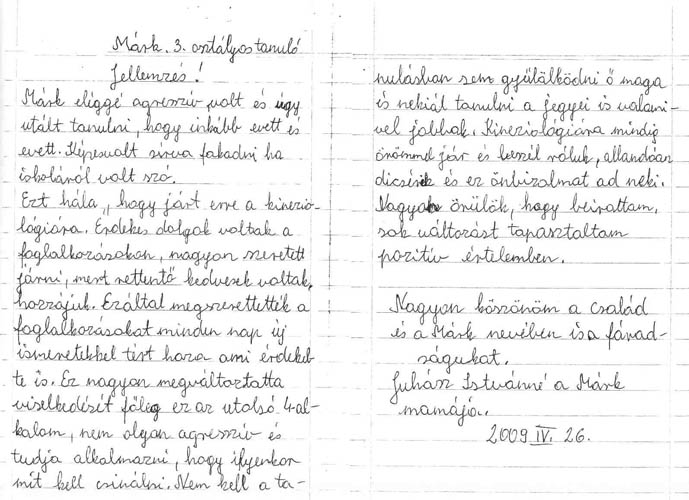 Márk. 3. osztályos tanuló
Jellemzés!
Márk eléggé agresszív volt és úgy
utált tanulni, hogy inkább evett és
evett. Képes volt sírva fakadni ha
iskoláról volt szó.
Ezt hála, hogy járt erre a kinezio-
lógiára. Érdekes dolgok voltak a
foglalkozásokon, nagyon szeretett
járni, mert rettentő kedvesek voltak
hozzájuk. Ezáltal megszerettették a
foglalkozásokat minden nap új
ismeretekkel tért haza ami érdekel-
te is. Ez nagyon megváltoztatta
viselkedését főleg ez az utolsó 4-al-
kalom, nem olyan agresszív és
tudja alkalmazni, hogy ilyenkor
mit kell csinálni. Nem kell a ta-
nulásban sem gyűlölködni ő maga
is nekiáll tanulni a jegyei is valami-
vel jobbak. Kineziológiára mindig
örömmel jár és beszél róluk, állandóan
dicsérik és ez önbizalmat ad neki.
Nagyon örülök, hogy beírattam,
sok változást tapasztaltam
pozitív értelemben.
Nagyon köszönöm a család
és a Márk nevében is a fárad-
ságukat.
Juhász Istvánné a Márk
mamája.
2009 IV. 26.